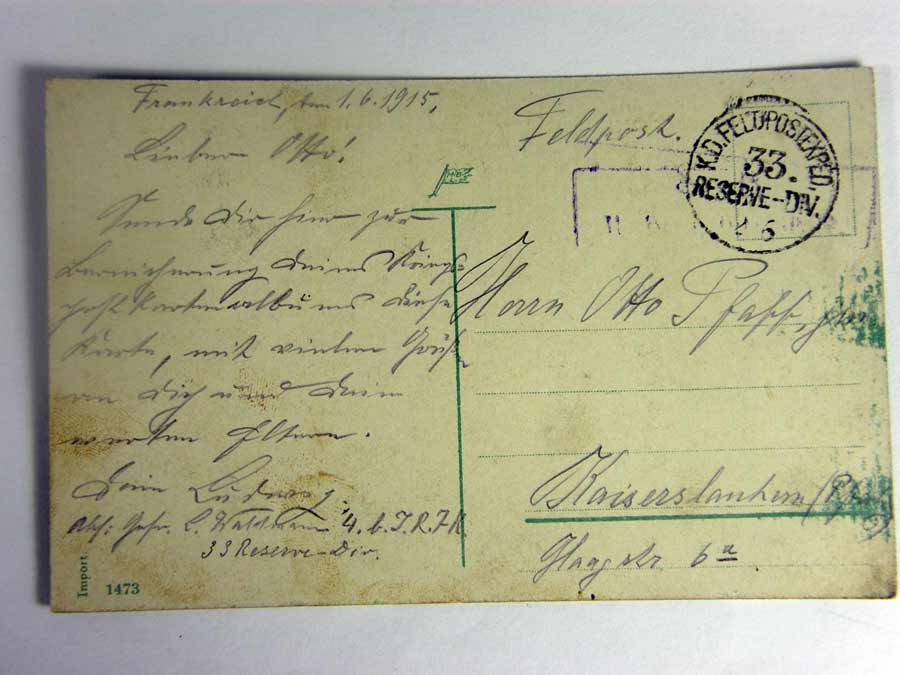 Frankreich, den 1.6.1915,
Lieber Otto!
Sende Dir hier zur
Bereicherung deines Kriegs-
postkartenalbums diese
Karte, mit vielen Grüßen
an Dich und Deine
werten Eltern.
Dein Ludwig.
Abs: Gefr. L. Waldmann 4. b. I. R.
33 Reserve-Div.
Import 1473
Feldpost.
K.D. FELDPOSTEXPED.
33.
RESERVE-DIV.
6
Herrn Otto Pfaff,
Kaiserslautern
6a